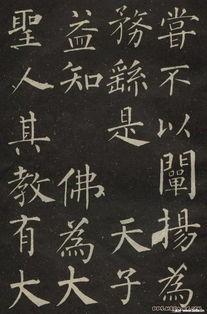 嘗不以闡揚為
務繇是　天子
益知　佛為大
聖人其教有大